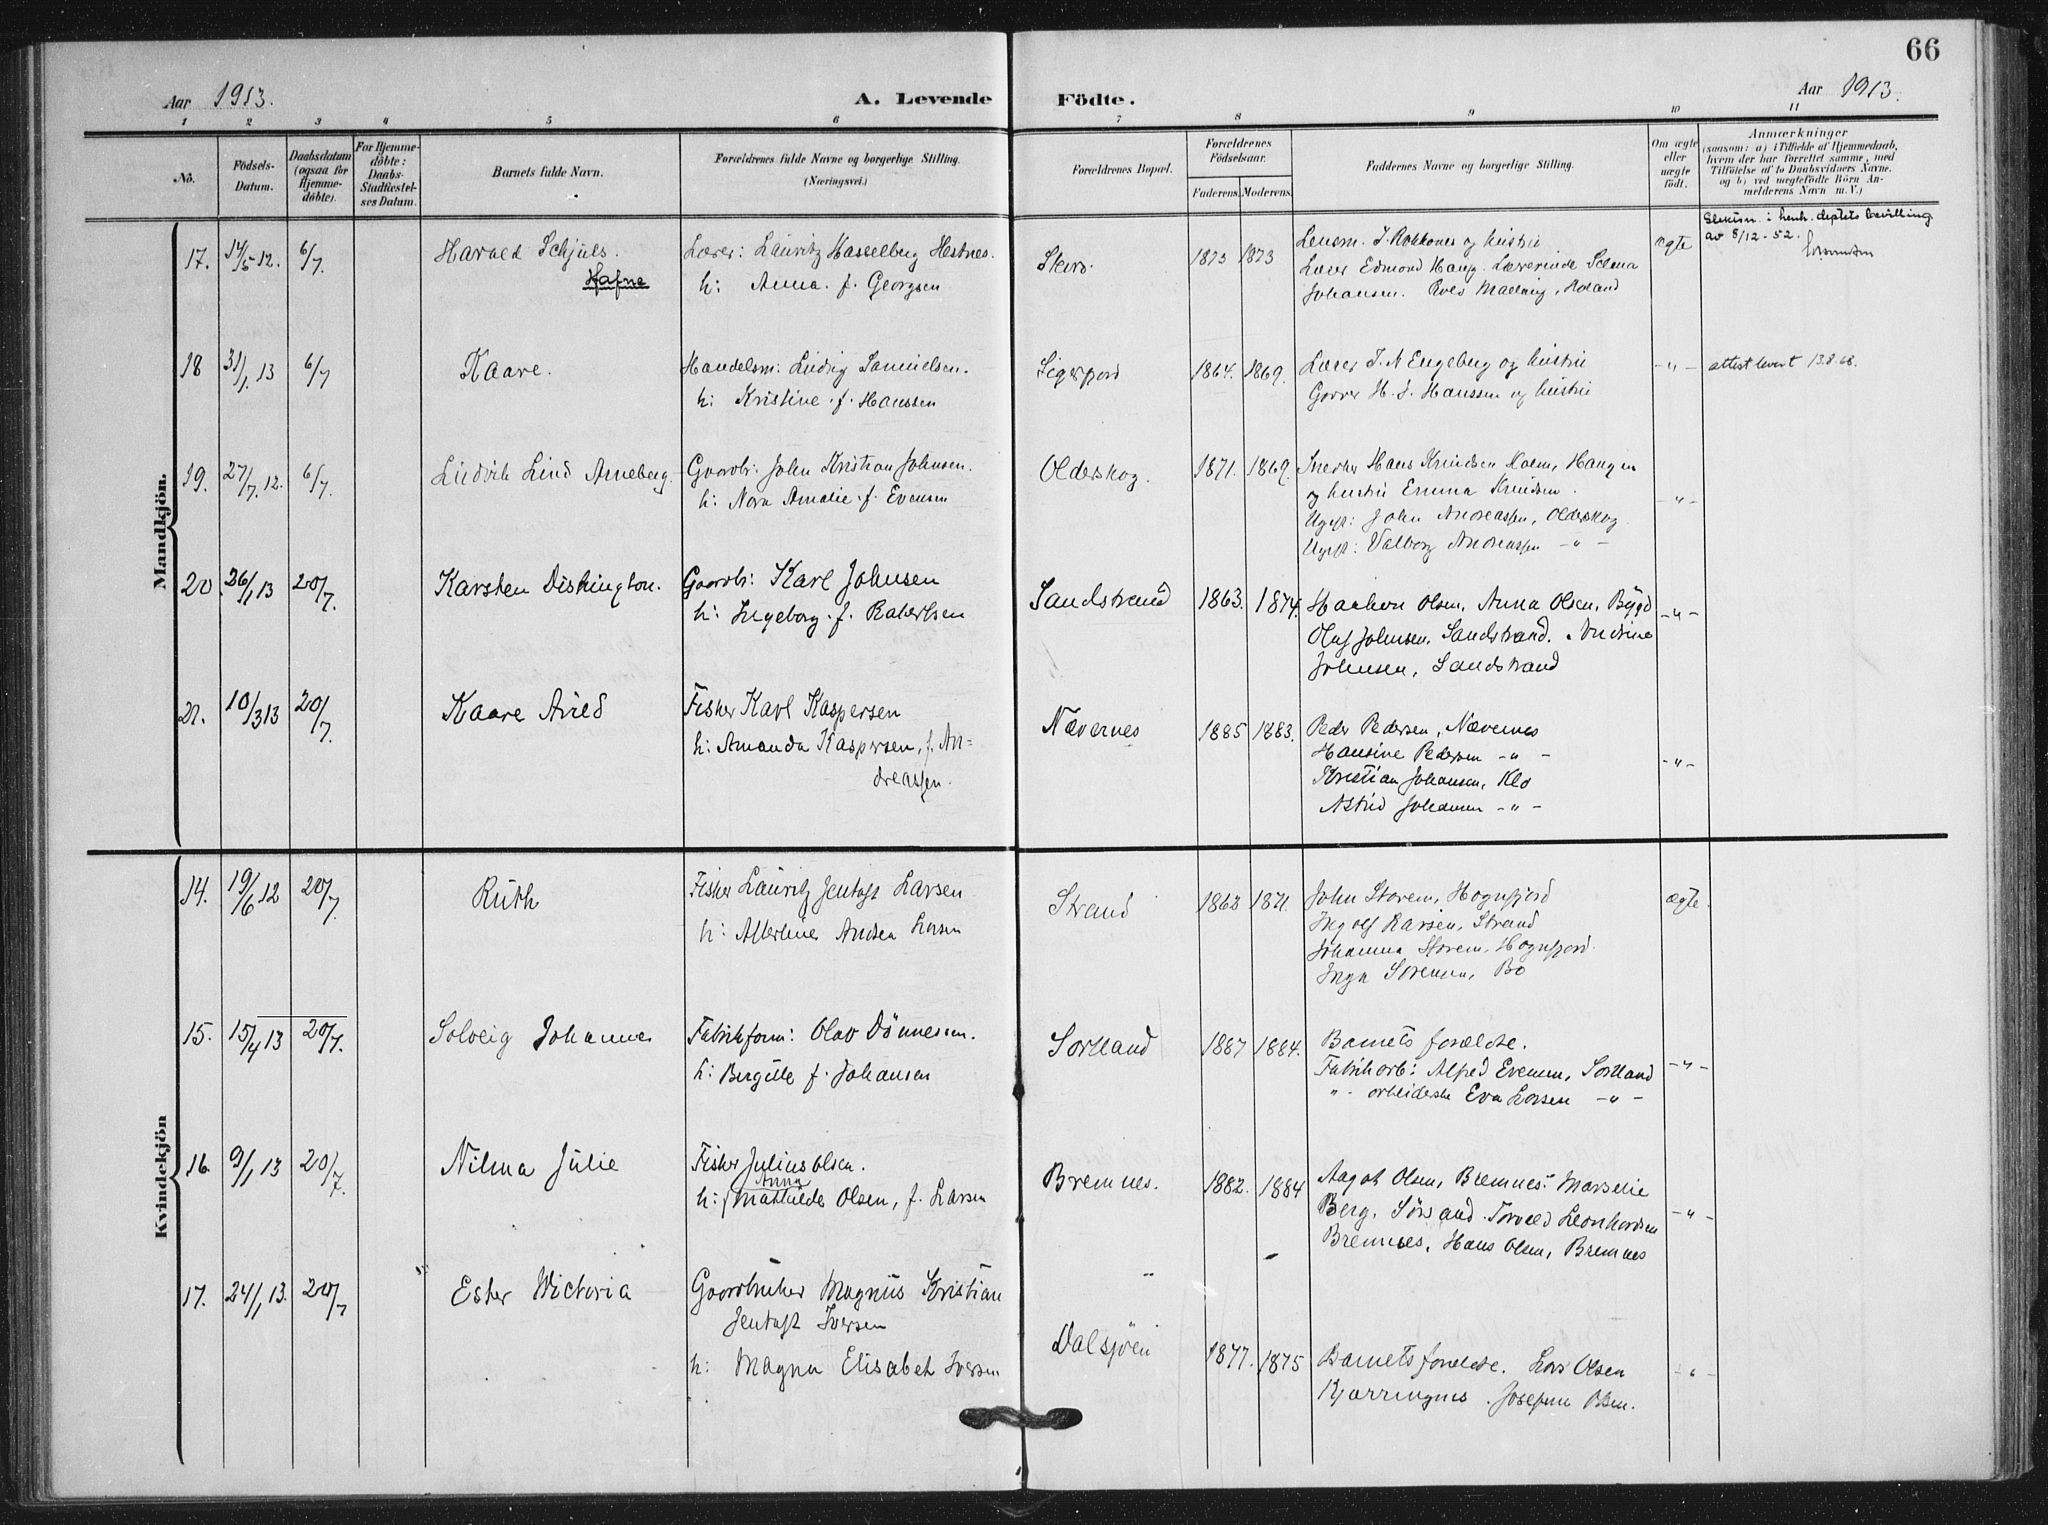 66
Aar 1913.
A. Levende Födte.
Aar 1913.
1 2 3 4 5 6 7 8 9 10 11
No.
Födsels-Datum.
Daabsdatum (ogsaa for Hjemme-döbte).
For Hjemme-döbte: Daabs-Stadfæstel-ses Datum.
Barnets fulde Navn.
Forældrenes fulde Navne og borgerlige Stilling.
(Næringsvei.)
Forældrenes Bopæl.
Forældrenes Födselsaar.
Faderens. Moderens.
Faddernes Navne og borgerlige Stilling.
Om ægte eller uægte födt.
Anmærkninger
(saasom: a) i Tilfælde af Hjemmedaab,
hvem der har forrettet samme, med
Tilföielse af to Daabsvidners Navne.
og b) ved uægtefödte Börn An-
melderens Navn m. V.)
Mandkjön.
17. 14/5 12. 6/7. Harald Schjuls.
Hafne
Lærer: Lauritz Hasselberg Hestnes.
h: Anna. f. Georgsen
1873 1873
Lensm. J. Rokkones og hustru
Lærer Edmond Haug. Lærerinde Selma
Johansen.
ægte
av 8/12-52.
18 31/1 13 6/7 Kaare.
Handelsm: Ludvig Samuelsen.
h: Kristine f. Hanssen
Sigerfjord 1864. 1869.
Lærer J. N Engeberg og hustru
H. J. Hanssen og hustru
-"- attest levert 13.8.68.
19. 27/7. 12. 6/7. Ludvik Lind Arneberg
Gaardb: John Kristian Johnsen.
h: Nora Amalie f. Evensen
Olderskog. 1871. 1869.
Hans Knudsen Holm, Haugen
og hustru Emma Knudsen.
Ugift: John Andreassen, Olderskog
Ugift: Valborg Andreassen -"-
-"-
20 26/1 13 20/7. Karsten Diskington.
Gaardb: Karl Johnsen
h: Ingeborg f. Robertsen
Sandstrand 1863. 1874.
Haakon Olsen, Anna Olsen, Bygd
Oluf Johnsen, Sandstrand. Andrine
Johnsen, Sandstrand
-"-
21. 10/3 13 20/7. Kaare Arild
Fisker Karl Kaspersen
h: Amanda Kaspersen, f. An-
dreassen.
Nævernes 1885 1883.
Peder Pedersen, Nævernes
Hansine Pedersen -"-
Kristian Johansen, Klo
Astrid Johansen -"-
-"-
Kvindekjön
14. 19/6 12 20/7. Ruth
Fisker Lauritz Jentoft Larsen
h: Larsen
Strand 1863 1871.
John Storem, Hognfjord
Ingolf Larsen, Strand
Johanna Storem, Hognfjord.
Inga Sörensen, Bö
ægte.
15. 15/4 13 20/7. Solveig Johanne
Fabrikform: Olav Dönnesen.
h: Bergitte f. Johansen
Sortland 1887 1884.
Barnets forældre.
Fabrikarb: Alfred Evensen, Sortland
"- arbeiderske Eva Larsen -"-
-"-
16. 9/1 13 20/7. Nilma Julie
Fisker Julius Olsen.
Anna
h: Mathilde Olsen, f. Larsen
Bremnes. 1882. 1884
Aagot Olsen, Bremnes. Marselie
Berg, Sörsand. Torvald Leonhardsen
Bremnes, Hans Olsen, Bremnes
-"-
17. 24/1 13. 20/7 Ester Victoria
Gaardbruker Magnus Kristian
Jentoft Iversen
h: Magna Elisabet Iversen
Dalsjöen 1877. 1875
Barnets forældre. Lars Olsen
Kjærringnes. Josefine Olsen.
-"-